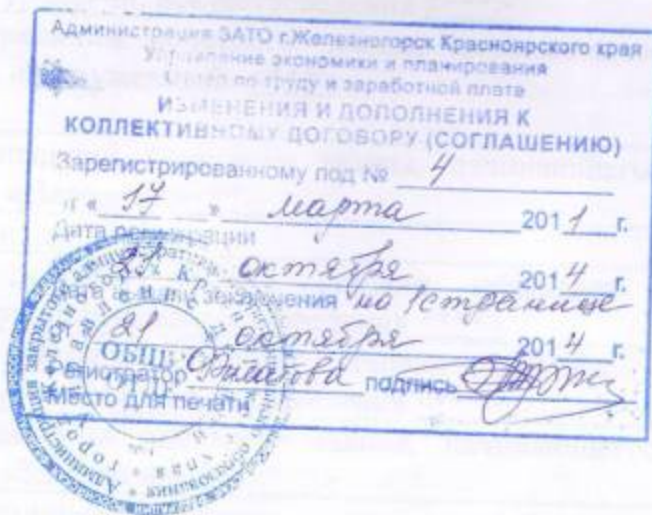 Администрация ЗАТО г.Железногорск Красноярского края
Управление экономики и планирования
Отдел по труду и заработной плате
ИЗМЕНЕНИЯ И ДОПОЛНЕНИЯ К
КОЛЛЕКТИВНОМУ ДОГОВОРУ (СОГЛАШЕНИЮ)
Зарегистрированному под № 4
от « 17 » марта 2011 г.
Дата регистрации
21 октября 2014 г.
заключения на 1 странице
21 октября 2014 г.
Регистратор Филатова подпись
Место для печати
ОБЩИЙ
ОТДЕЛ